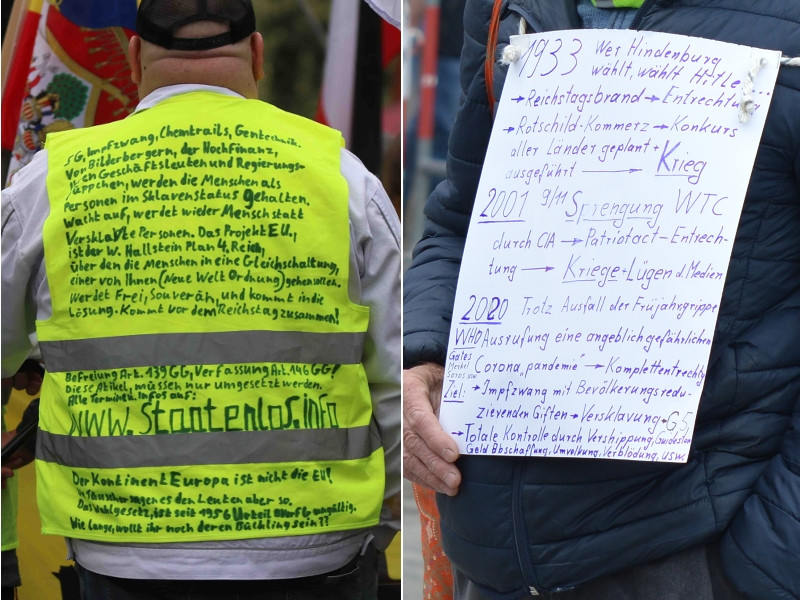 5G, Impfzwang, Chemtrails, Gentechnik.
Von Bilderbergern, der Hochfinanz,
den Geschäftsleuten und Regierungs-
püppchen, werden die Menschen als
Personen im Sklavenstatus gehalten.
Wacht auf, werdet wieder Mensch statt
Versklavte Personen. Das Projekt EU,
ist der W. Hallstein Plan 4. Reich,
über den die Menschen in eine Gleichschaltung,
einer von Ihnen (Neue Welt Ordnung) gehen sollen.
Werdet Frei, Souverän, und kommt in die
Lösung. Kommt vor dem Reichstag zusammen!
Befreiung Art. 139 GG, Verfassung Art. 146 GG!
Diese Artikel, müssen nur umgesetzt werden.
Alle Termine u. Infos auf:
WWW.Staatenlos.info
Der Kontinent Europa ist nicht die EU!
Täuscher sagen es den Leuten aber so.
Das Wahlgesetz, ist seit 1956 Urteil ungültig.
Wie lange, wollt ihr noch deren Bückling sein??
1933 Wer Hindenburg
wählt, wählt Hitle...
→ Reichstagsbrand → Entrechtung
→ Rotschild-Kommerz → Konkurs
aller Länder geplant +
ausgeführt → Krieg
2001 9/11 Sprengung WTC
durch CIA → Patriotact - Entrech-
tung → Kriege + Lügen d. Medien
2020 Trotz Ausfall der Früjahrgrippe
WHO Ausrufung eine angeblich gefährlichen
Gates
Merkel
Soros usw
Corona "pandemie" → Komplettentrechtg
Ziel: → Impfzwang mit Bevölkerungsredu-
zierenden Giften → Versklavung + G5,
→ Totale Kontrolle durch Vershippung, Guideston
Geld Abschaffung, Umvolkung, Verblödung, usw.